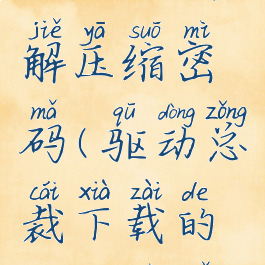 jiě yā suō mì
解压缩密
mǎ qū dòng zǒng
码(驱动总
cái xià zài de
裁下载的